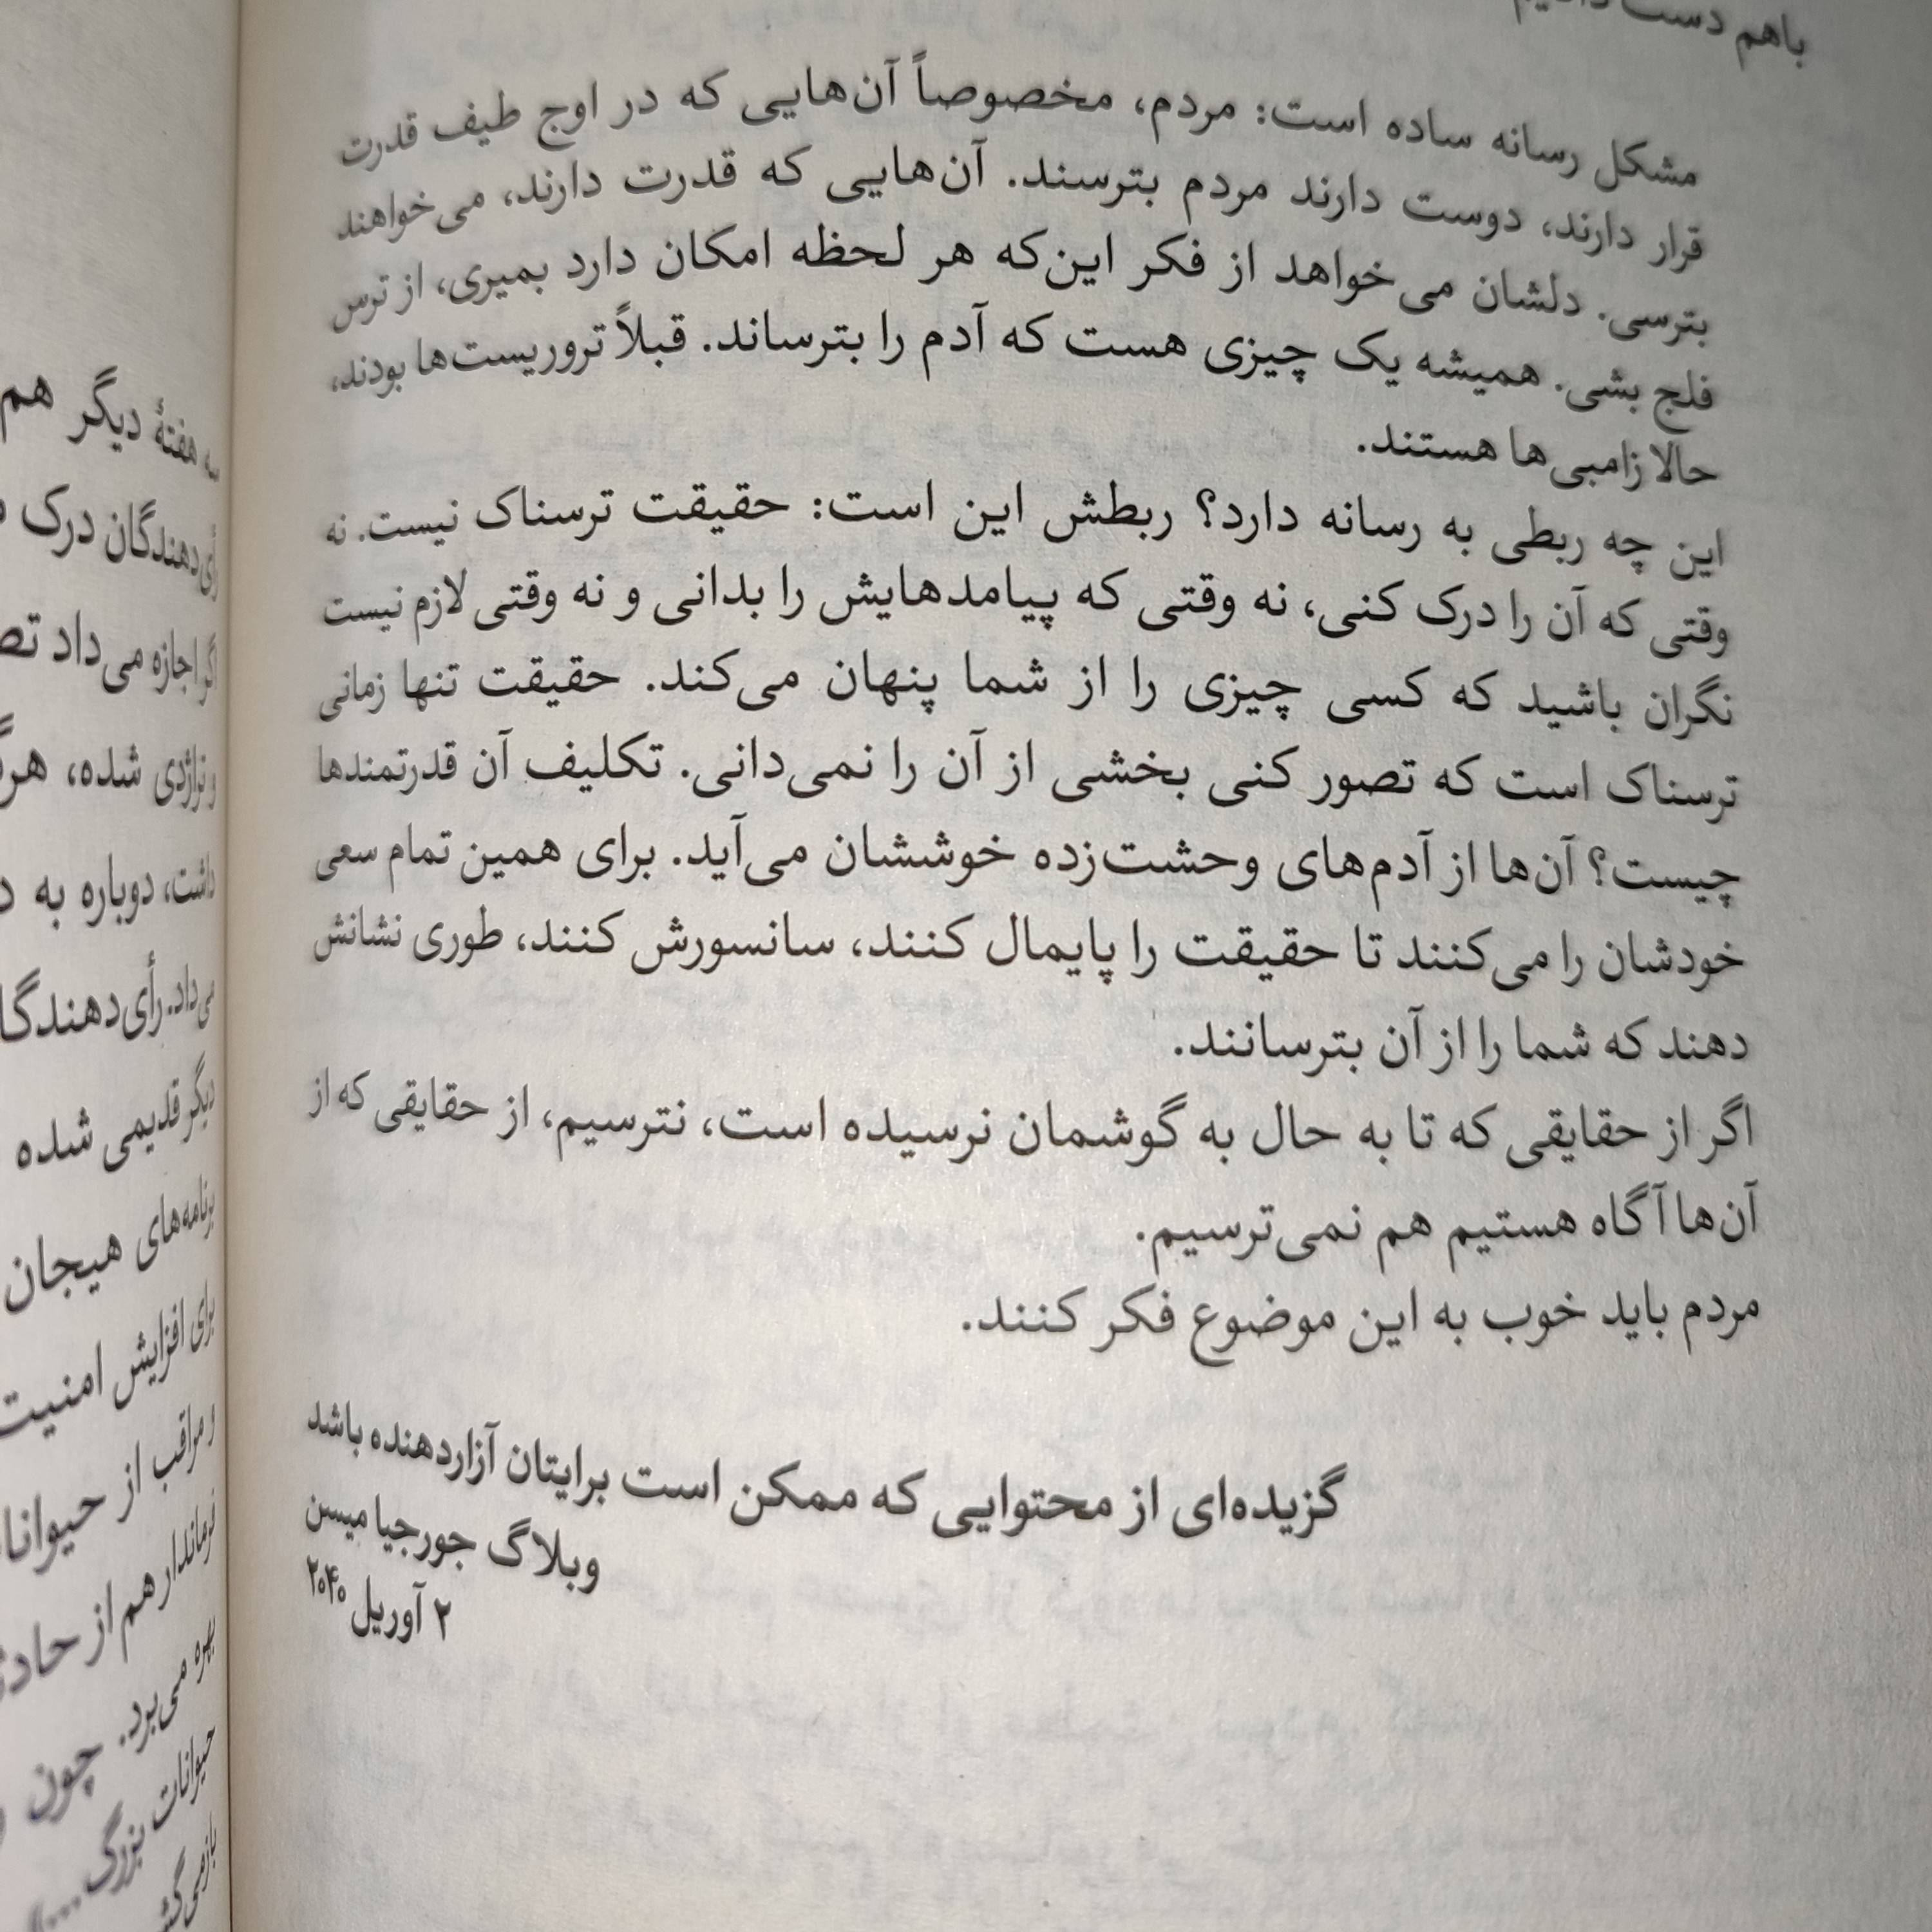 باهم دست
مشکل رسانه ساده است: مردم، مخصوصاً آن‌هایی که در اوج طیف قدرت
قرار دارند، دوست دارند مردم بترسند. آن‌هایی که قدرت دارند، می‌خواهند
بترسی. دلشان می‌خواهد از فکر این‌که هر لحظه امکان دارد بمیری، از ترس
فلج بشی. همیشه یک چیزی هست که آدم را بترساند. قبلاً تروریست‌ها بودند،
حالا زامبی‌ها هستند.
این چه ربطی به رسانه دارد؟ ربطش این است: حقیقت ترسناک نیست. نه
وقتی که آن را درک کنی، نه وقتی که پیامدهایش را بدانی و نه وقتی لازم نیست
نگران باشید که کسی چیزی را از شما پنهان می‌کند. حقیقت تنها زمانی
ترسناک است که تصور کنی بخشی از آن را نمی‌دانی. تکلیف آن قدرتمندها
چیست؟ آن‌ها از آدم‌های وحشت‌زده خوششان می‌آید. برای همین تمام سعی
خودشان را می‌کنند تا حقیقت را پایمال کنند، سانسورش کنند، طوری نشانش
دهند که شما را از آن بترسانند.
اگر از حقایقی که تا به حال به گوشمان نرسیده است، نترسیم، از حقایقی که از
آن‌ها آگاه هستیم هم نمی‌ترسیم.
مردم باید خوب به این موضوع فکر کنند.
گزیده‌ای از محتوایی که ممکن است برایتان آزاردهنده باشد
وبلاگ جورجیا میسن
۲ آوریل ۲۰۴۰
هفتهٔ دیگر هم
رأی‌دهندگان درک
اگر اجازه می‌داد
شده،
داشت، دوباره به
می‌داد.
دیگر قدیمی شده
برنامه‌های هیجان
برای افزایش امنیت
و مراقب از
فرماندار هم از
بهره می‌برد. چون
حیوانات بزرگ...